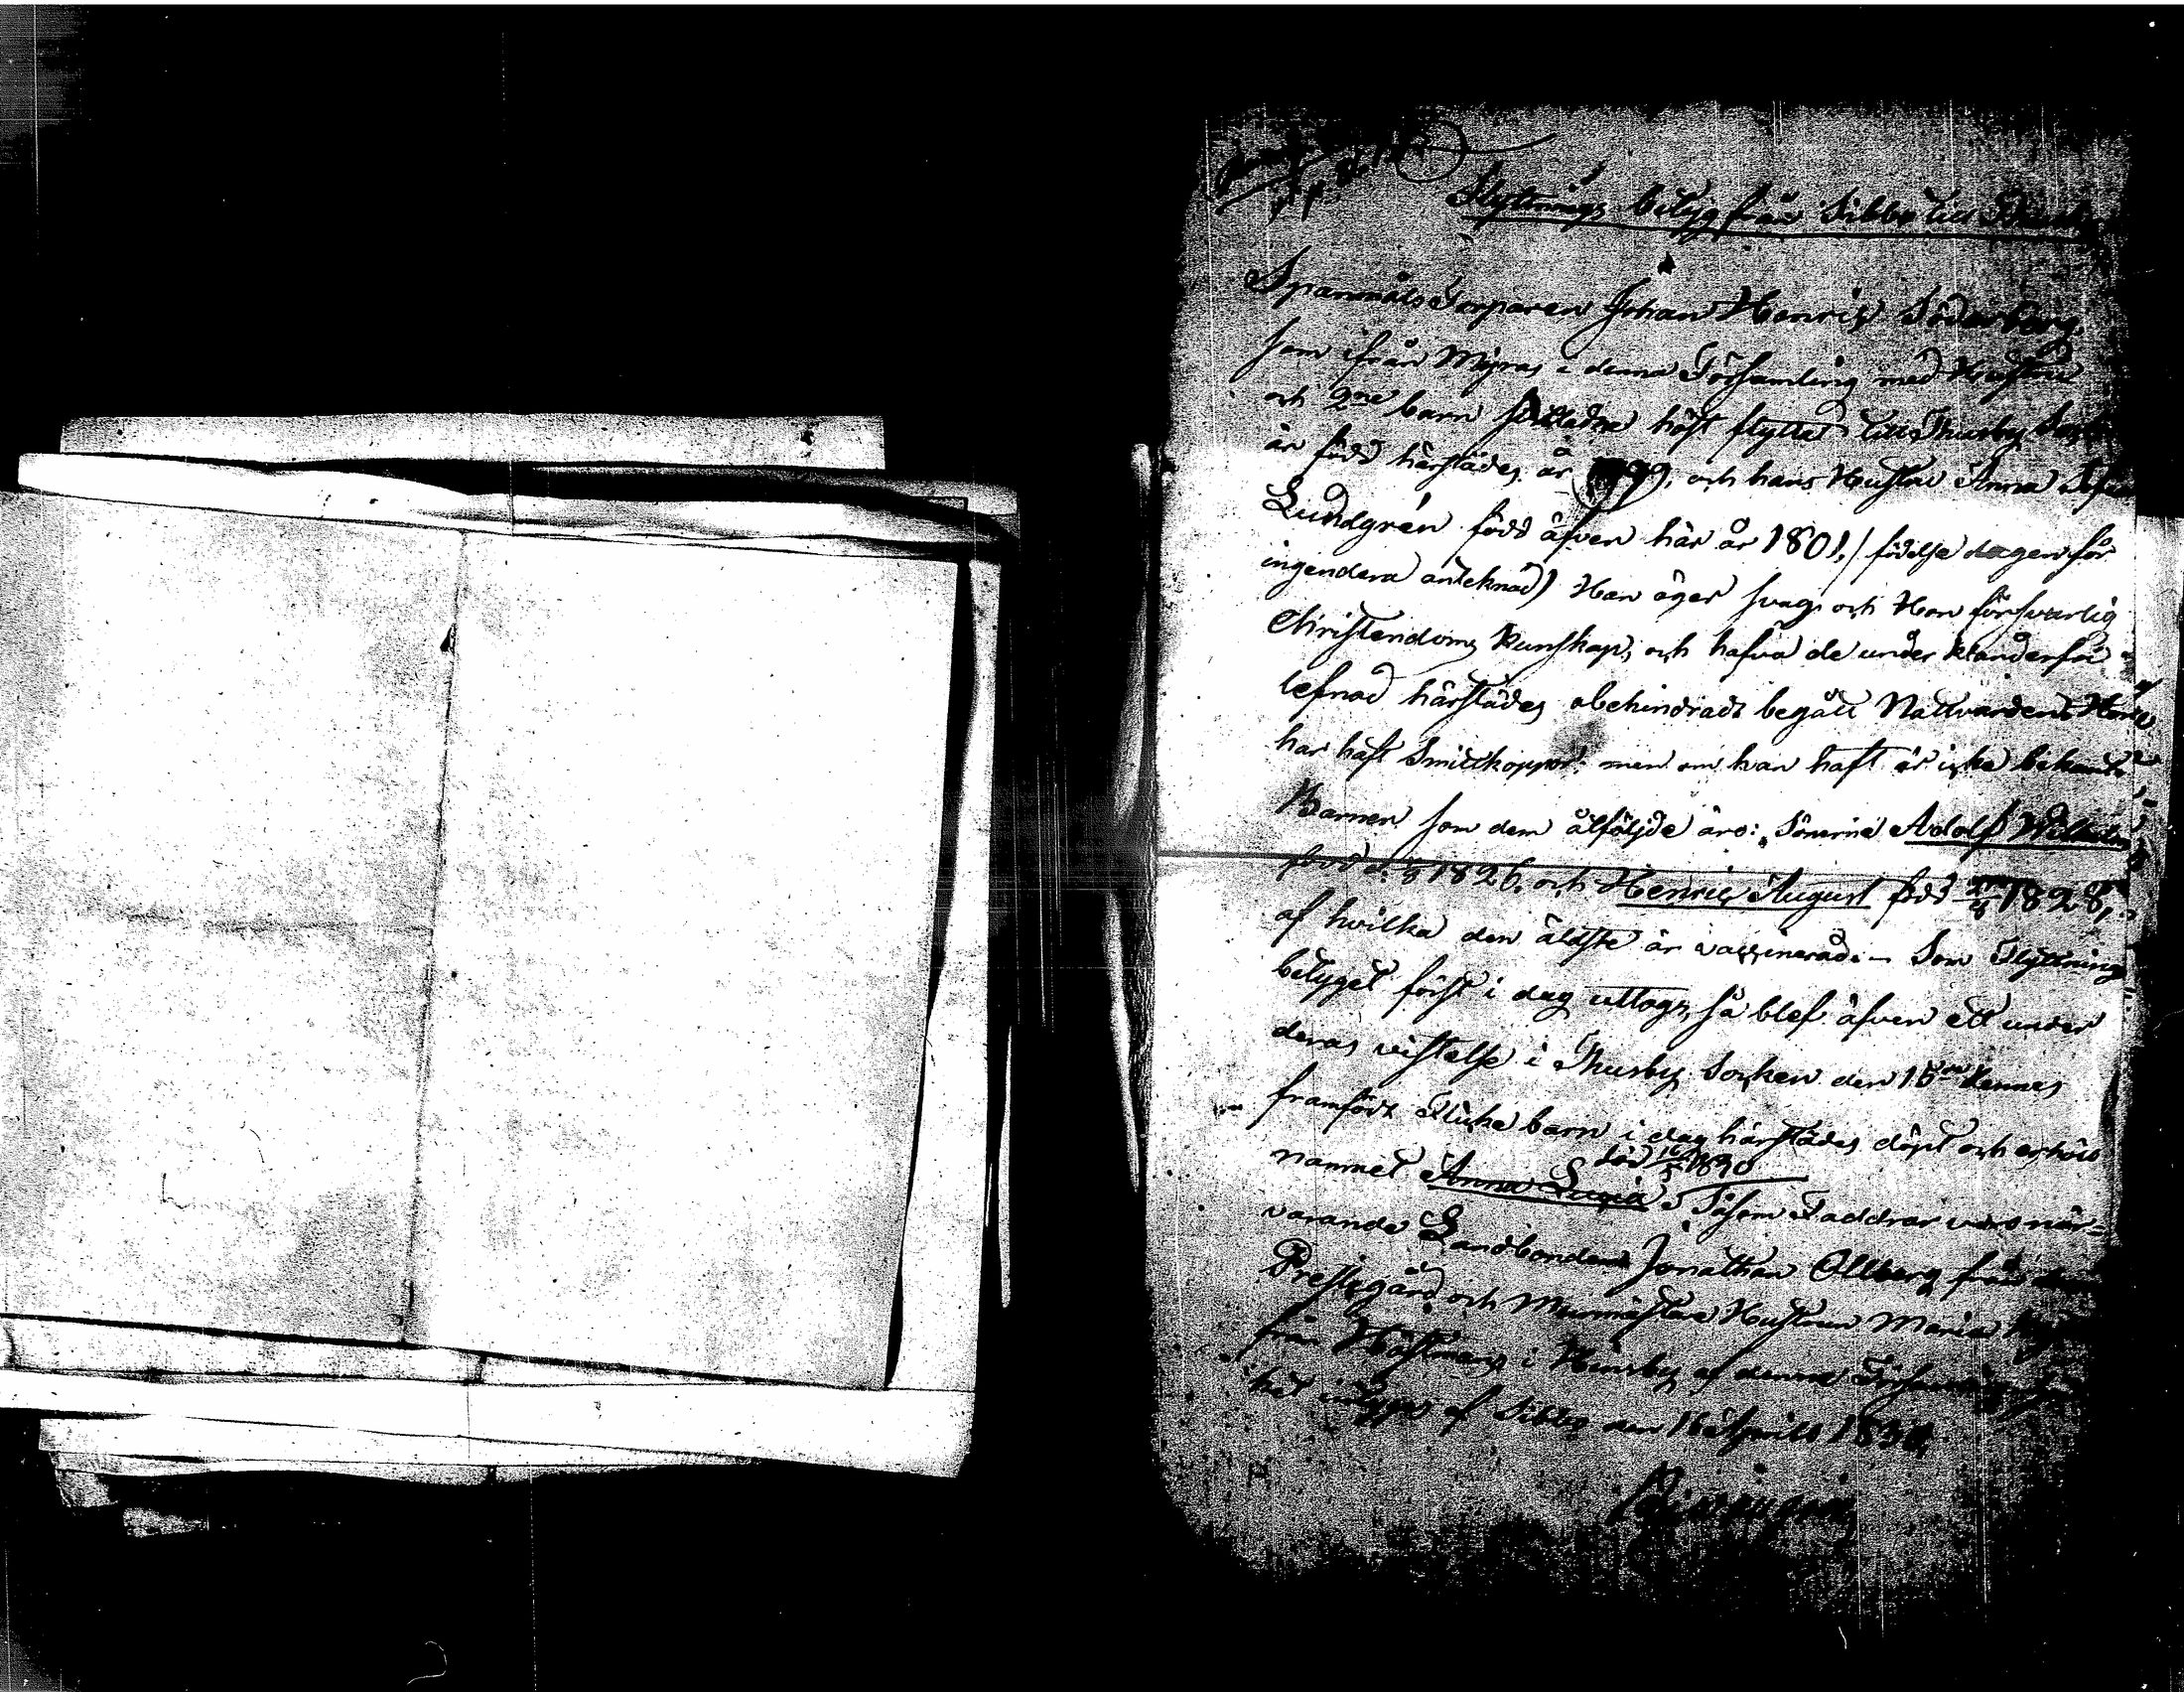 Flyttnings betyg från Sibbo till
Spanmåls Torparen Johan Henric Söderberg,
som ifrån Myras i denna Församling med Hustru
och 2ne barn sistledne höst flyttat till Thusby Socken
är född härstädes år 1799, och hans Hustru Anna
Lundgrén född äfven här år 1801, / födelse dagen för
ingendera anteknad) Han äger svag och Hon försvarlig
Christendoms kunskap, och hafva de under klanderfri
lefnad härstädes obehindradt begått Nattvarden. Hon
har haft Smittkoppor: men om han haft är icke bekant.
Barnen som dem åtföljde äro: Sönerne Adolf Wilhelm
född 1826, och Henric August född 1828,
af hvilka den äldste är vaccinerad. – Som Flyttnings
betyget först i dag uttogs, så blef äfven ett under
deras vistelse i Thusby Socken den 15 dennes
framfödt Flicke barn i dag härstädes döpt och erhöll
död 16/5 1830
namnet Anna Lugia Såsom Faddrar voro när-
varande Landbonden Jonathan Ollberg från
Prestegård och Murmästare Hustrun Maria
från Västmans i Hindsby af denna Församling
ket intygas af Sibbo den 18 Aprill 1830.